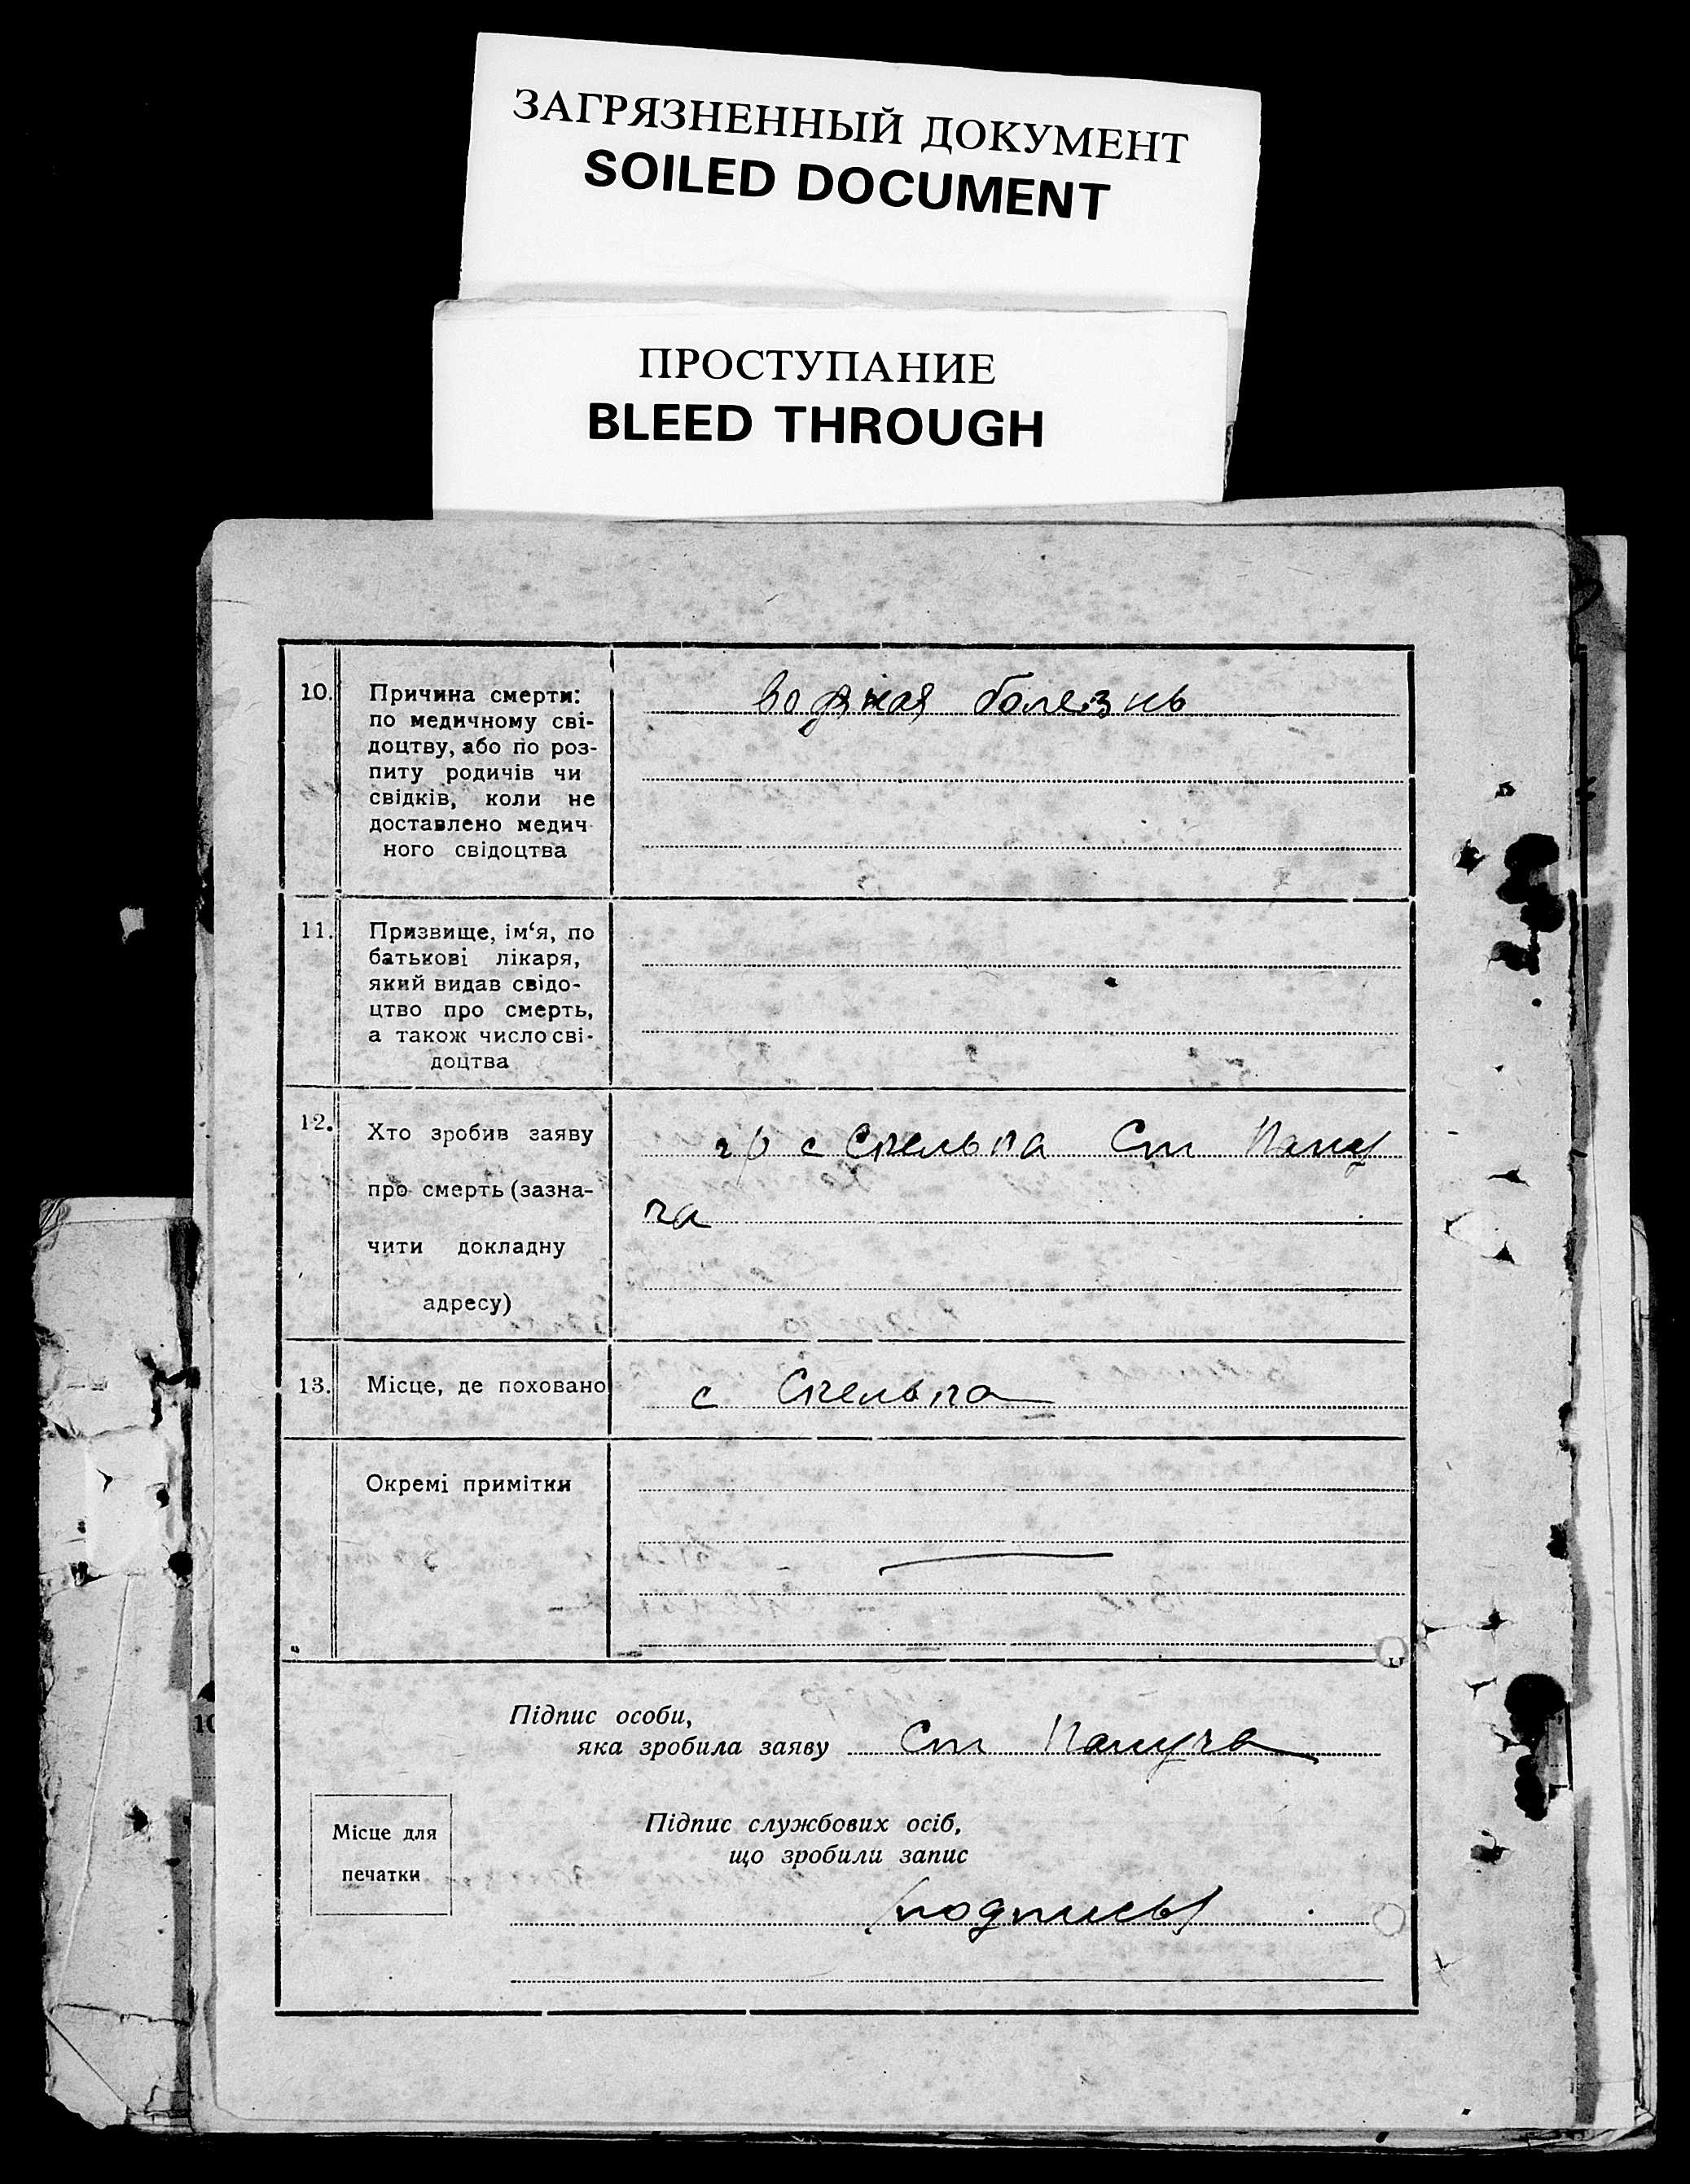 ЗАГРЯЗНЕННЫЙ ДОКУМЕНТ
SOILED DOCUMENT
ПРОСТУПАНИЕ
BLEED THROUGH
10. Причина смерти: водяная болезнь
по медичному сві-
доцтву, або по роз-
питу родичів чи
свідків, коли не
доставлено медич
ного свідоцтва
11. Призвище, ім‘я, по
батькові лікаря,
який видав свідо-
цтво про смерть,
а також число сві-
доцтва
12. Хто зробив заяву гр с Ст
про смерть (зазна-
чити докладну
адресу)
13. Місце, де поховано с
Окремі примітки
Підпис особи,
яка зробила заяву Ст
Місце для
печатки
Підпис службових осіб,
що зробили запис
/подпись/
10